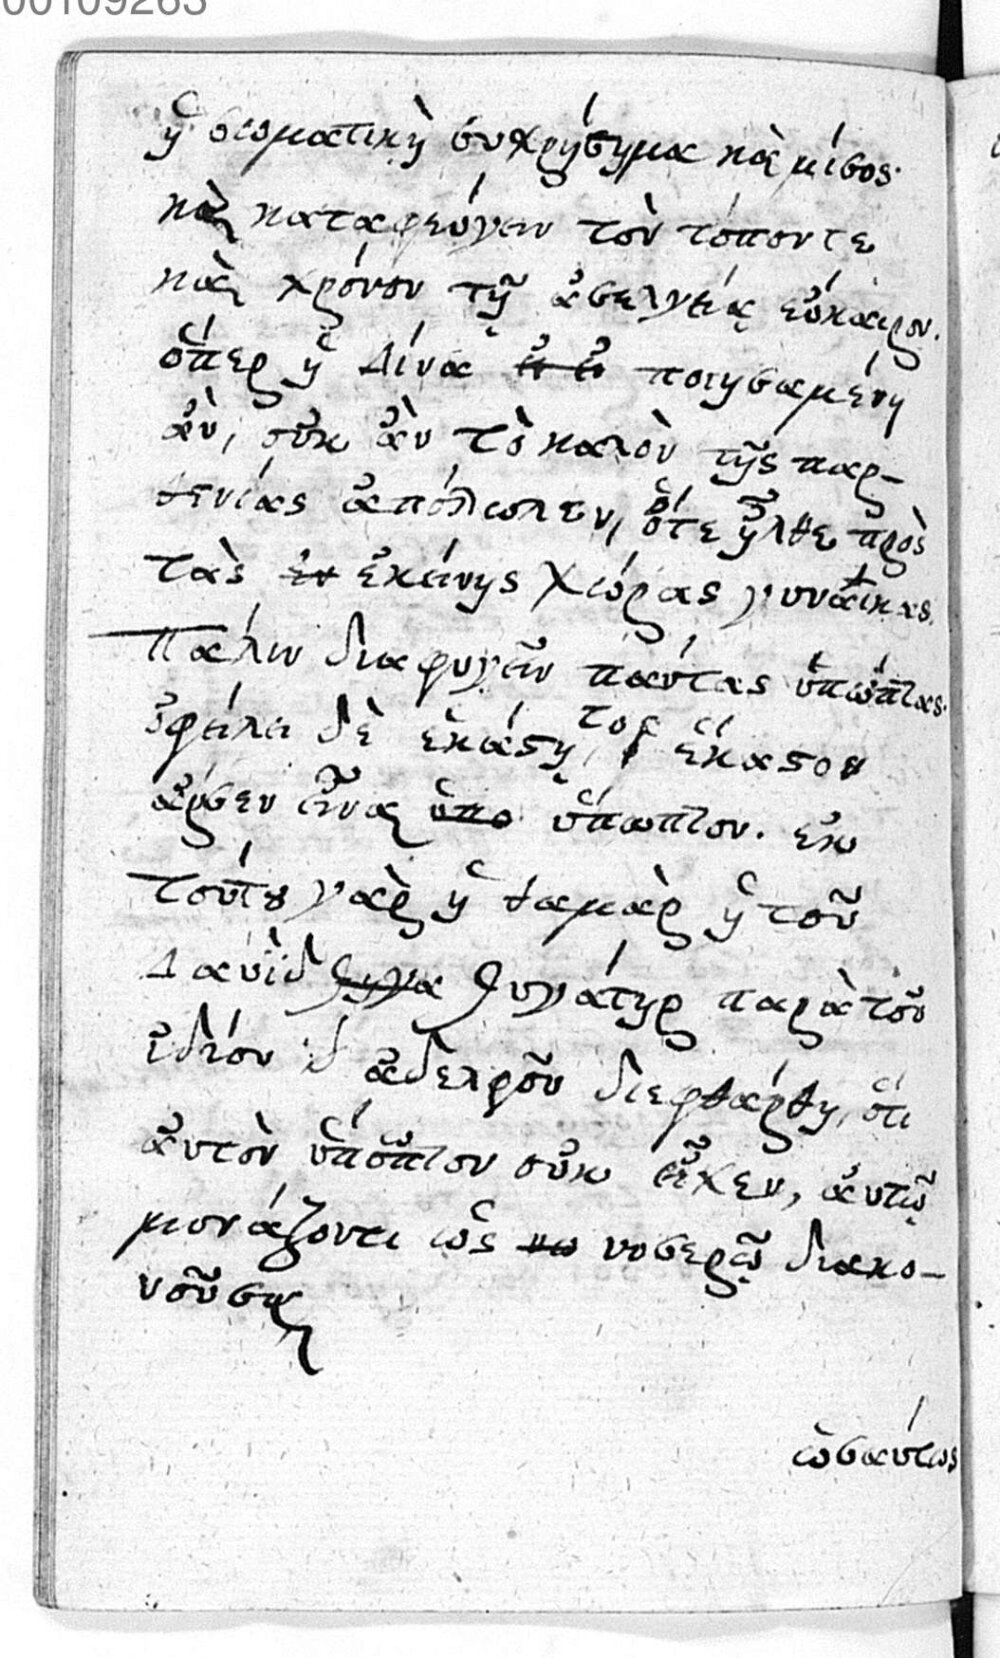 00109263
ἡ σωματικὴ συχρήσημα κὰι μίσος·
κὰι καταφεύγειν τὸν τόπον τε
κὰι χρόνον τῇ ἀσελγείᾳ εὔκαιρον.
ὅπερ ἡ Δίνα ποιησαμένη
ἂν, οὐκ ἂν τὸ καλὸν τῆς παρ-
θενίας ἀπόλωλεν, ὅτε ἦλθε πρὸς
τὰς ἐκείνης χώρας γυναῖκας.
Πάλιν διαφυγεῖν πάντας ὑπώπτας.
ὀφείλει δὲ ἑκάστῃ, τος ἕκαστον
ἄρσεν εἶναι ὕπωπτον. ἐκ
τούτου γὰρ ἡ θαμὰρ ἡ τοῦ
Δαυὶδ θυγάτηρ παρὰ τοῦ
ἰδίου ἀδελφοῦ διεφθάρθη, ὅτι
ἀυτὸν ὕποπτον οὐκ εἶχεν, ἀυτῷ
μονάζοντι ὡς νοσερῷ διακο-
νοῦσαι
ὡσαύτως